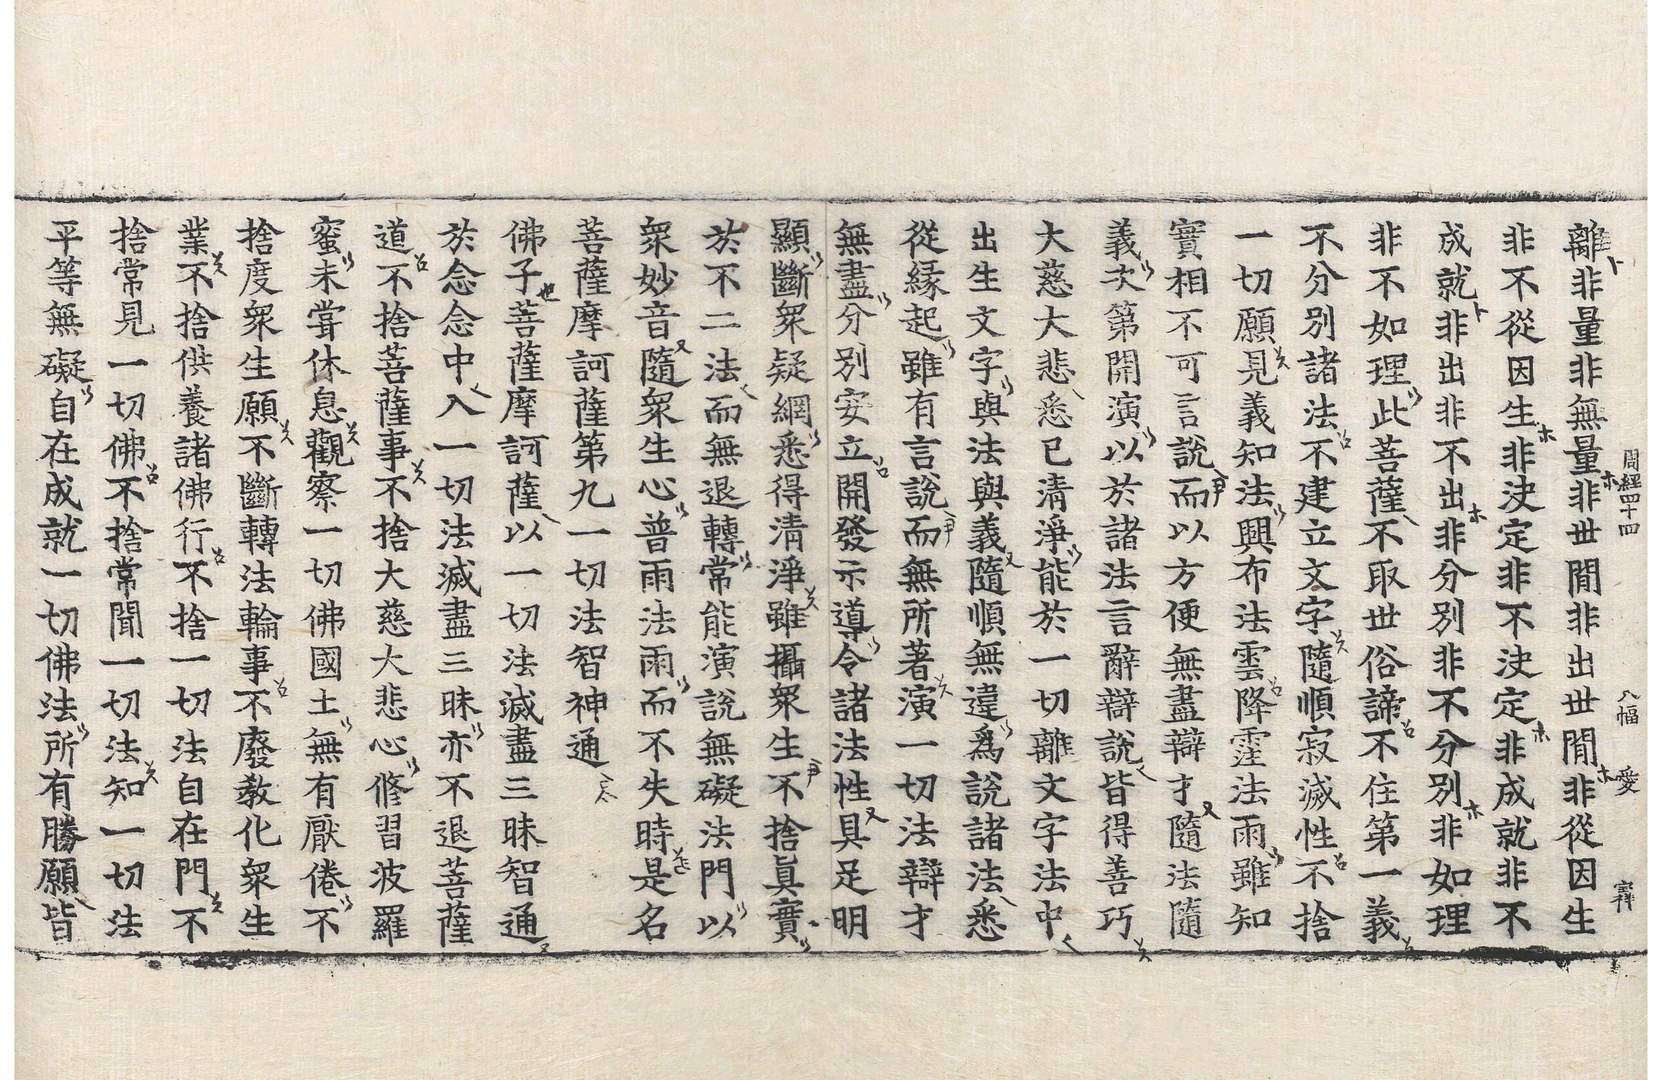 周經四十四 八幅 愛
離非量非無量非世間非出世間非從因生
非不從因生非決定非不決定非成就非不
成就非出非不出非分別非不分別非如理
非不如理此菩薩不取世俗諦不住第一義
不分別諸法不建立文字隨順寂滅性不捨
一切願見義知法興布法雲降霔法雨雖知
實相不可言說而以方便無盡辯才隨法隨
義次第開演以於諸法言辭辯說皆得善巧
大慈大悲悉已清淨能於一切離文字法中
出生文字與法與義隨順無違爲說諸法悉
從緣起雖有言說而無所著演一切法辯才
無盡分別安立開發示導令諸法性具足明
顯斷衆疑網悉得清淨雖攝衆生不捨眞實
於不二法而無退轉常能演說無礙法門以
衆妙音隨衆生心普雨法雨而不失時是名
菩薩摩訶薩第九一切法智神通
佛子菩薩摩訶薩以一切法滅盡三昧智通
於念念中入一切法滅盡三昧亦不退菩薩
道不捨菩薩事不捨大慈大悲心修習波羅
蜜未嘗休息觀察一切佛國土無有厭倦不
捨度衆生願不斷轉法輪事不廢敎化衆生
業不捨供養諸佛行不捨一切法自在門不
捨常見一切佛不捨常聞一切法知一切法
平等無礙自在成就一切佛法所有勝願皆